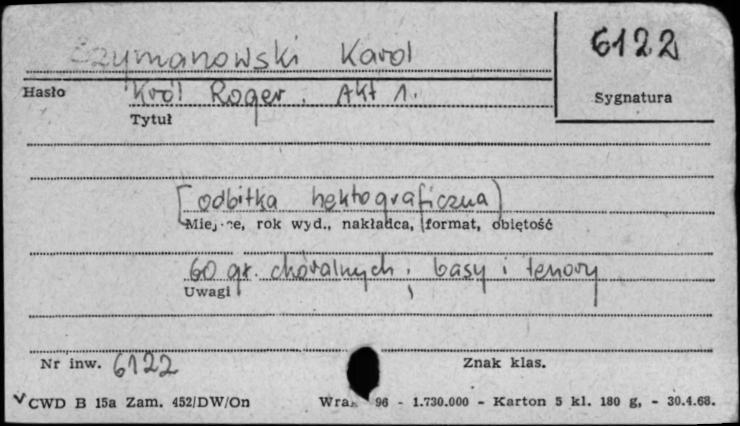 Szymanowski Karol
6122
Hasło
Król Roger. Akt 1.
Sygnatura
Tytuł
[odbitka hektograficzna)
Miejsce, rok wyd., nakładca, format, obiętość
60 gł. chóralnych; basy i tenory
Uwagi
Nr inw. 6122
Znak klas.
CWD B 15a Zam. 452/DW/On
96 - 1.730.000 - Karton 5 kl. 180 g, - 30.4.68.